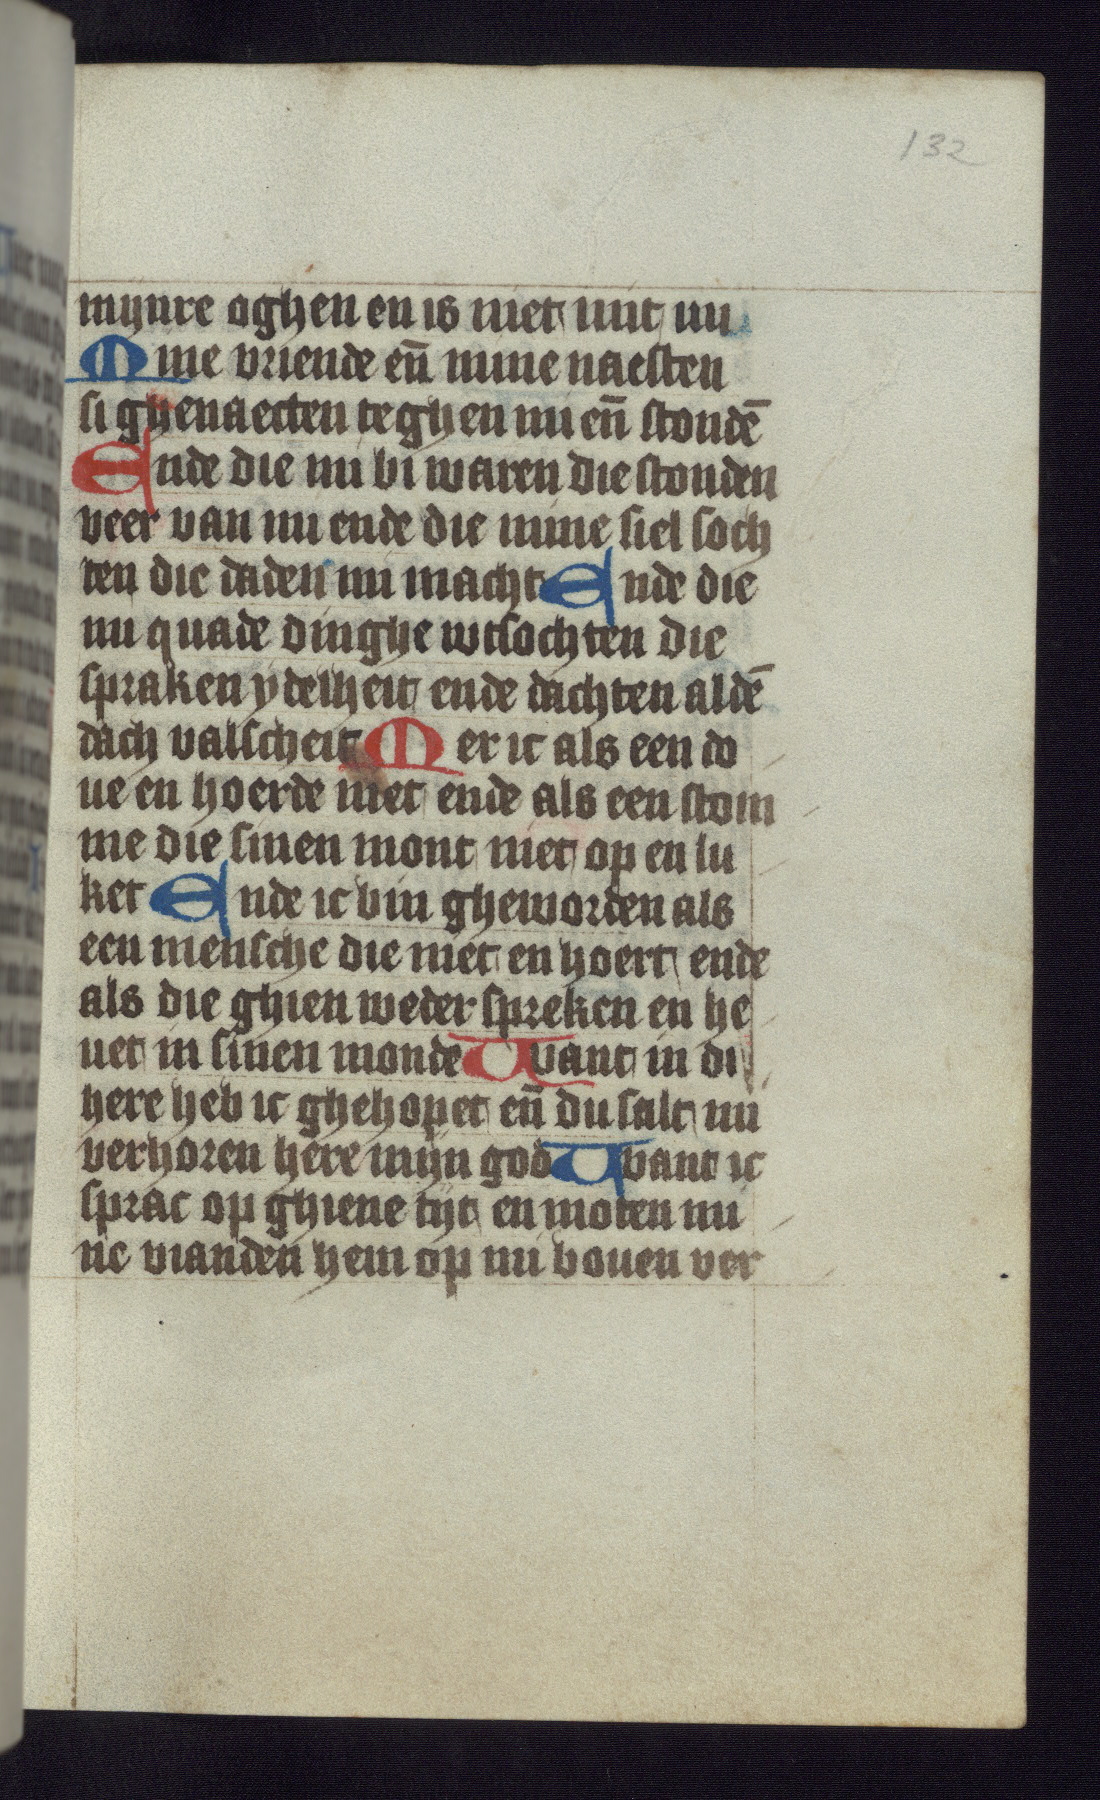 132
mijnre oghen en is niet mit mi
Mine vriende en̄ mine naesten
si ghenaecten teghen mi en̄ stondē
Ende die mi bi waren die stonden
veer van mi ende die mine siel soch
ten die daden mi macht Ende die
mi quade dinghe wtsochten die
spraken ydelheit ende dachten aldē
dach valscheit Mer ic als een do
ue en hoerde niet ende als een stom
me die sinen mont niet op en lu
ket Ende ic bin gheworden als
een mensche die niet en hoert ende
als die ghien weder spreken en he
uet in sinen monde Want in di
here heb ic ghehopet en̄ du salt mi
verhoren here mijn god Want ic
sprac op ghiene tijt en moten mi
ne vianden hem op mi bouen ver